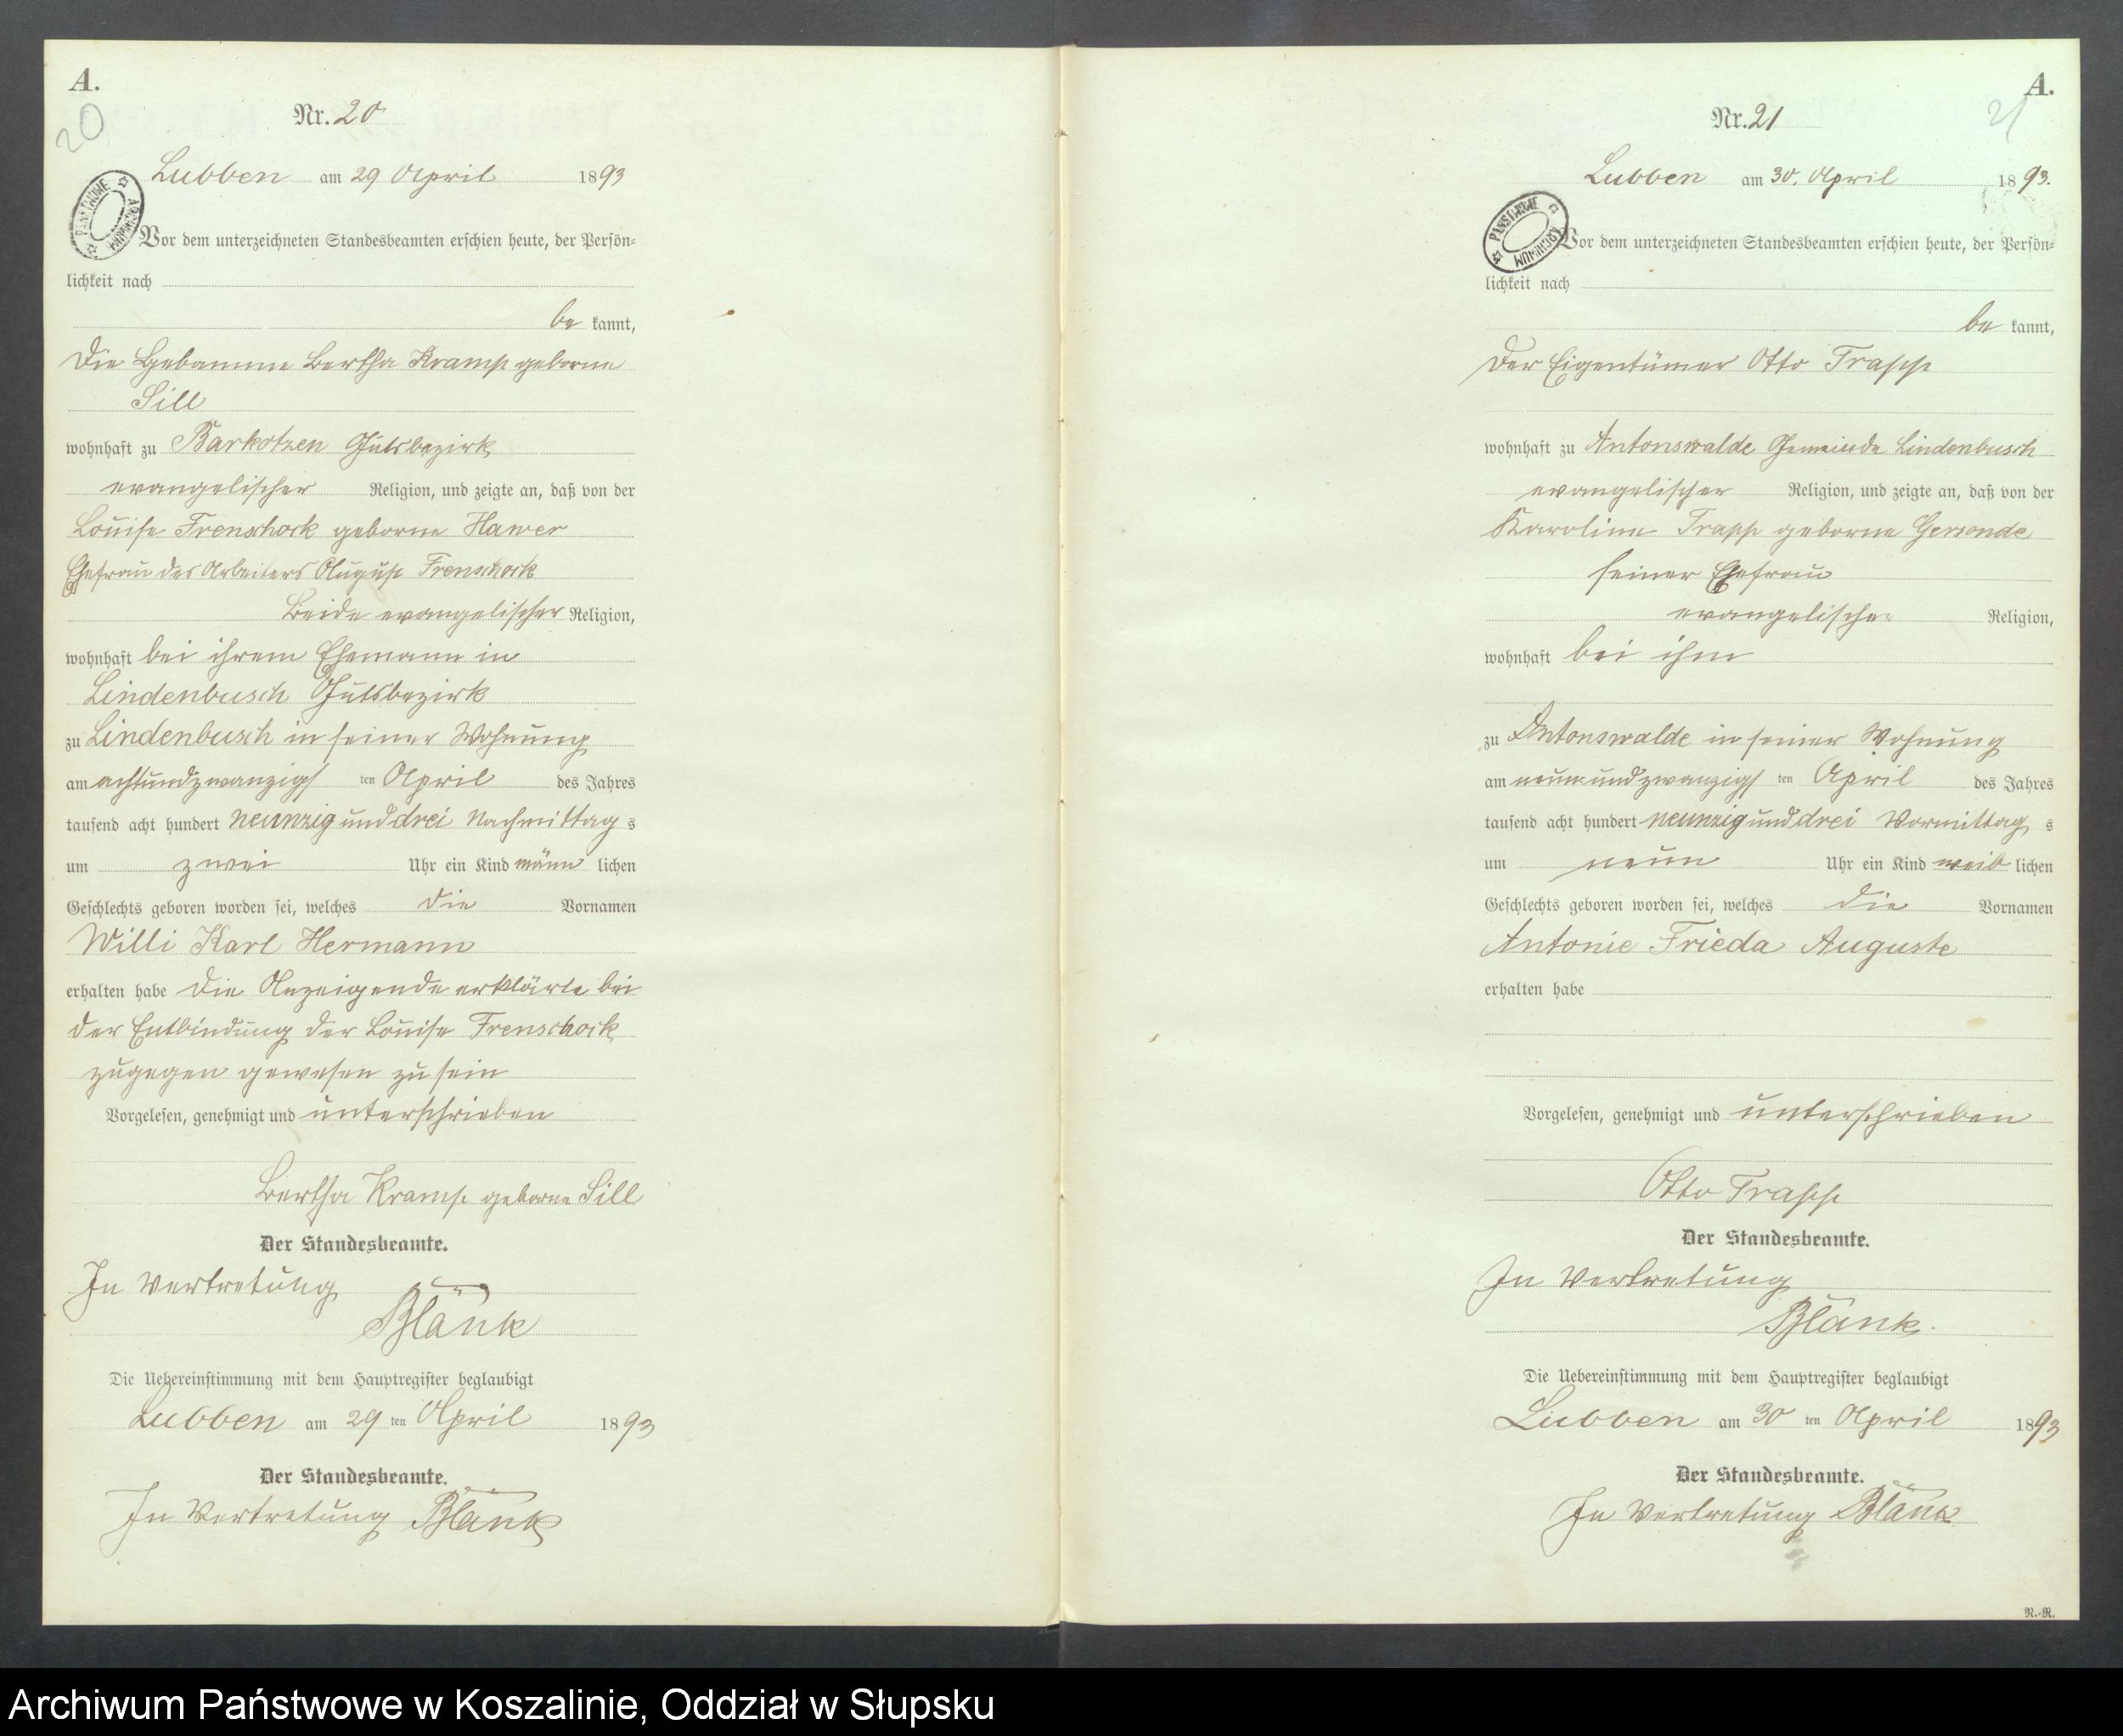 A.
20
Nr. 20
Lubben am 29 April 1893
PAŃSTWOWE ARCHIWUM
Vor dem unterzeichneten Standesbeamten erschien heute, der Persön=
lichkeit nach
be kannt,
die Hebamme Bertha Kramp geborne
Sill
wohnhaft zu Barkotzen Gutsbezirk
evangelischer Religion, und zeigte an, daß von der
Louise Frenschock geborne Hawer
Ehefrau des Arbeiters August Frenschock
Beide evangelischer Religion,
wohnhaft bei ihrem Ehemann in
Lindenbusch Gutsbezirk
zu Lindenbusch in seiner Wohnung
am achtundzwanzigs ten April des Jahres
tausend acht hundert neunzig und drei Nachmittag s
um zwei Uhr ein Kind männ lichen
Geschlechts geboren worden sei, welches die Vornamen
Willi Karl Hermann
erhalten habe die Anzeigende erklärte bei
der Entbindung der Louise Frenschock
zugegen gewesen zu sein
Vorgelesen, genehmigt und unterschrieben
Bertha Kramp geborne Sill
Der Standesbeamte.
In Vertretung
Blänk
Die Uebereinstimmung mit dem Hauptregister beglaubigt
Lubben am 29 ten April 1893
Der Standesbeamte.
In Vertretung Blänk
A.
21
Nr. 21
Lubben am 30. April 1893.
PAŃSTWOWE ARCHIWUM
Vor dem unterzeichneten Standesbeamten erschien heute, der Persön=
lichkeit nach
be kannt,
der Eigentümer Otto Trapp
wohnhaft zu Antonswalde Gemeinde Lindenbusch
evangelischer Religion, und zeigte an, daß von der
Karoline Trapp geborne Gersonde
seiner Ehefrau
evangelischer Religion,
wohnhaft bei ihm
zu Antonswalde in seiner Wohnung
am neunundzwanzigs ten April des Jahres
tausend acht hundert neunzig und drei Vormittag s
um neun Uhr ein Kind weib lichen
Geschlechts geboren worden sei, welches die Vornamen
Antonie Frieda Auguste
erhalten habe
Vorgelesen, genehmigt und unterschrieben
Otto Trapp
Der Standesbeamte.
In Vertretung
Blänk.
Die Uebereinstimmung mit dem Hauptregister beglaubigt
Lubben am 30 ten April 1893
Der Standesbeamte.
In Vertretung Blänk
N.-N.
Archiwum Państwowe w Koszalinie, Oddział w Słupsku